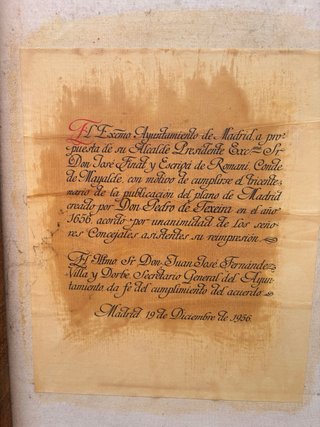 El Excmo Ayuntamiento de Madrid, a pro-
puesta de su Alcalde Presidente Exc.mo Sr
Don José Finat y Escrivá de Romaní, Conde
de Mayalde, con motivo de cumplirse el tricente-
nario de la publicación del plano de Madrid
creado por Don Pedro de Texeira en el año
1656, acordó por unanimidad de los seño-
res Concejales asistentes su reimpresión.
El Iltmo Sr Don Juan José Fernández-
Villa y Dorbe, Secretario General del Ayun-
tamiento, da fe del cumplimiento del acuerdo
Madrid 19 de Diciembre de 1956